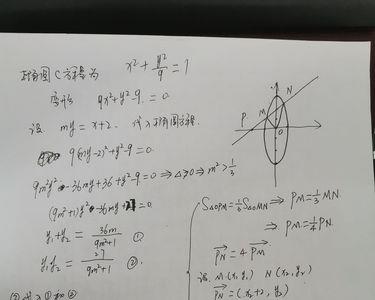 椭圆C方程为 x²+y²/9=1
变形 9x²+y²-9=0
设 my=x+2. 代入椭圆方程.
9(my-2)²+y²-9=0
9m²y²-36my+36+y²-9=0 ⇒ Δ>0 ⇒ m²>1/3
(9m²+1)y²-36my+27=0
y₁+y₂=36m/(9m²+1) ①
y₁y₂=27/(9m²+1) ②.
①和②
P M N O
S△OPM=1/3 S△OMN ⇒ PM=1/3 MN.
⇒ PM=1/4 PN.
PN=4PM
设 M(x₁,y₁) N(x₂,y₂)
PN=(x₂+2,y₂)